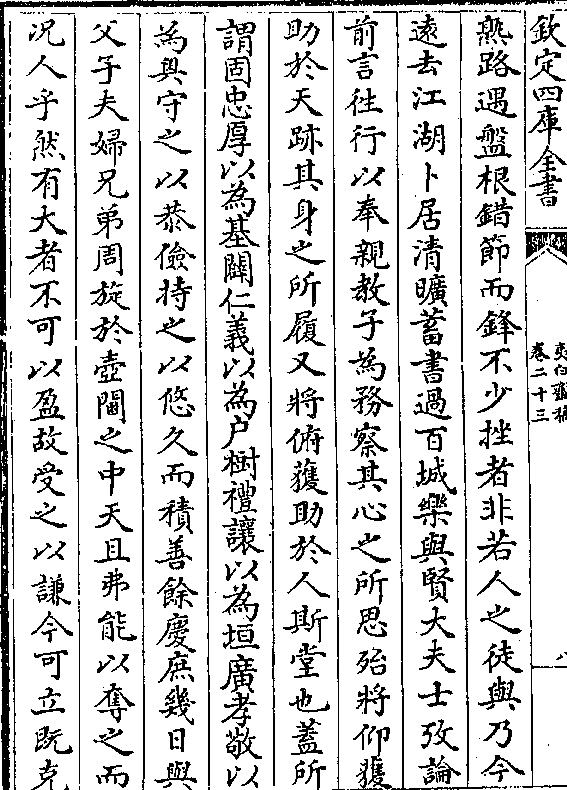 欽定四庫全書
夷白齋稿
卷二十三
八
熟路遇盤根錯節而鋒不少挫者非若人之徒與乃今
遠去江湖卜居清曠蓄書過百城樂與賢大夫士攷論
前言徃行以奉親教子為務察其心之所思殆將仰獲
助於天跡其身之所履又將俯獲助於人斯堂也蓋所
謂固忠厚以為基闢仁義以為户樹禮讓以為垣廣孝敬以
為輿守之以恭儉持之以悠久而積善餘慶庶幾日與
父子夫婦兄弟周旋於壺閫之中天且弗能以奪之而
况人乎然有大者不可以盈故受之以謙今可立既克